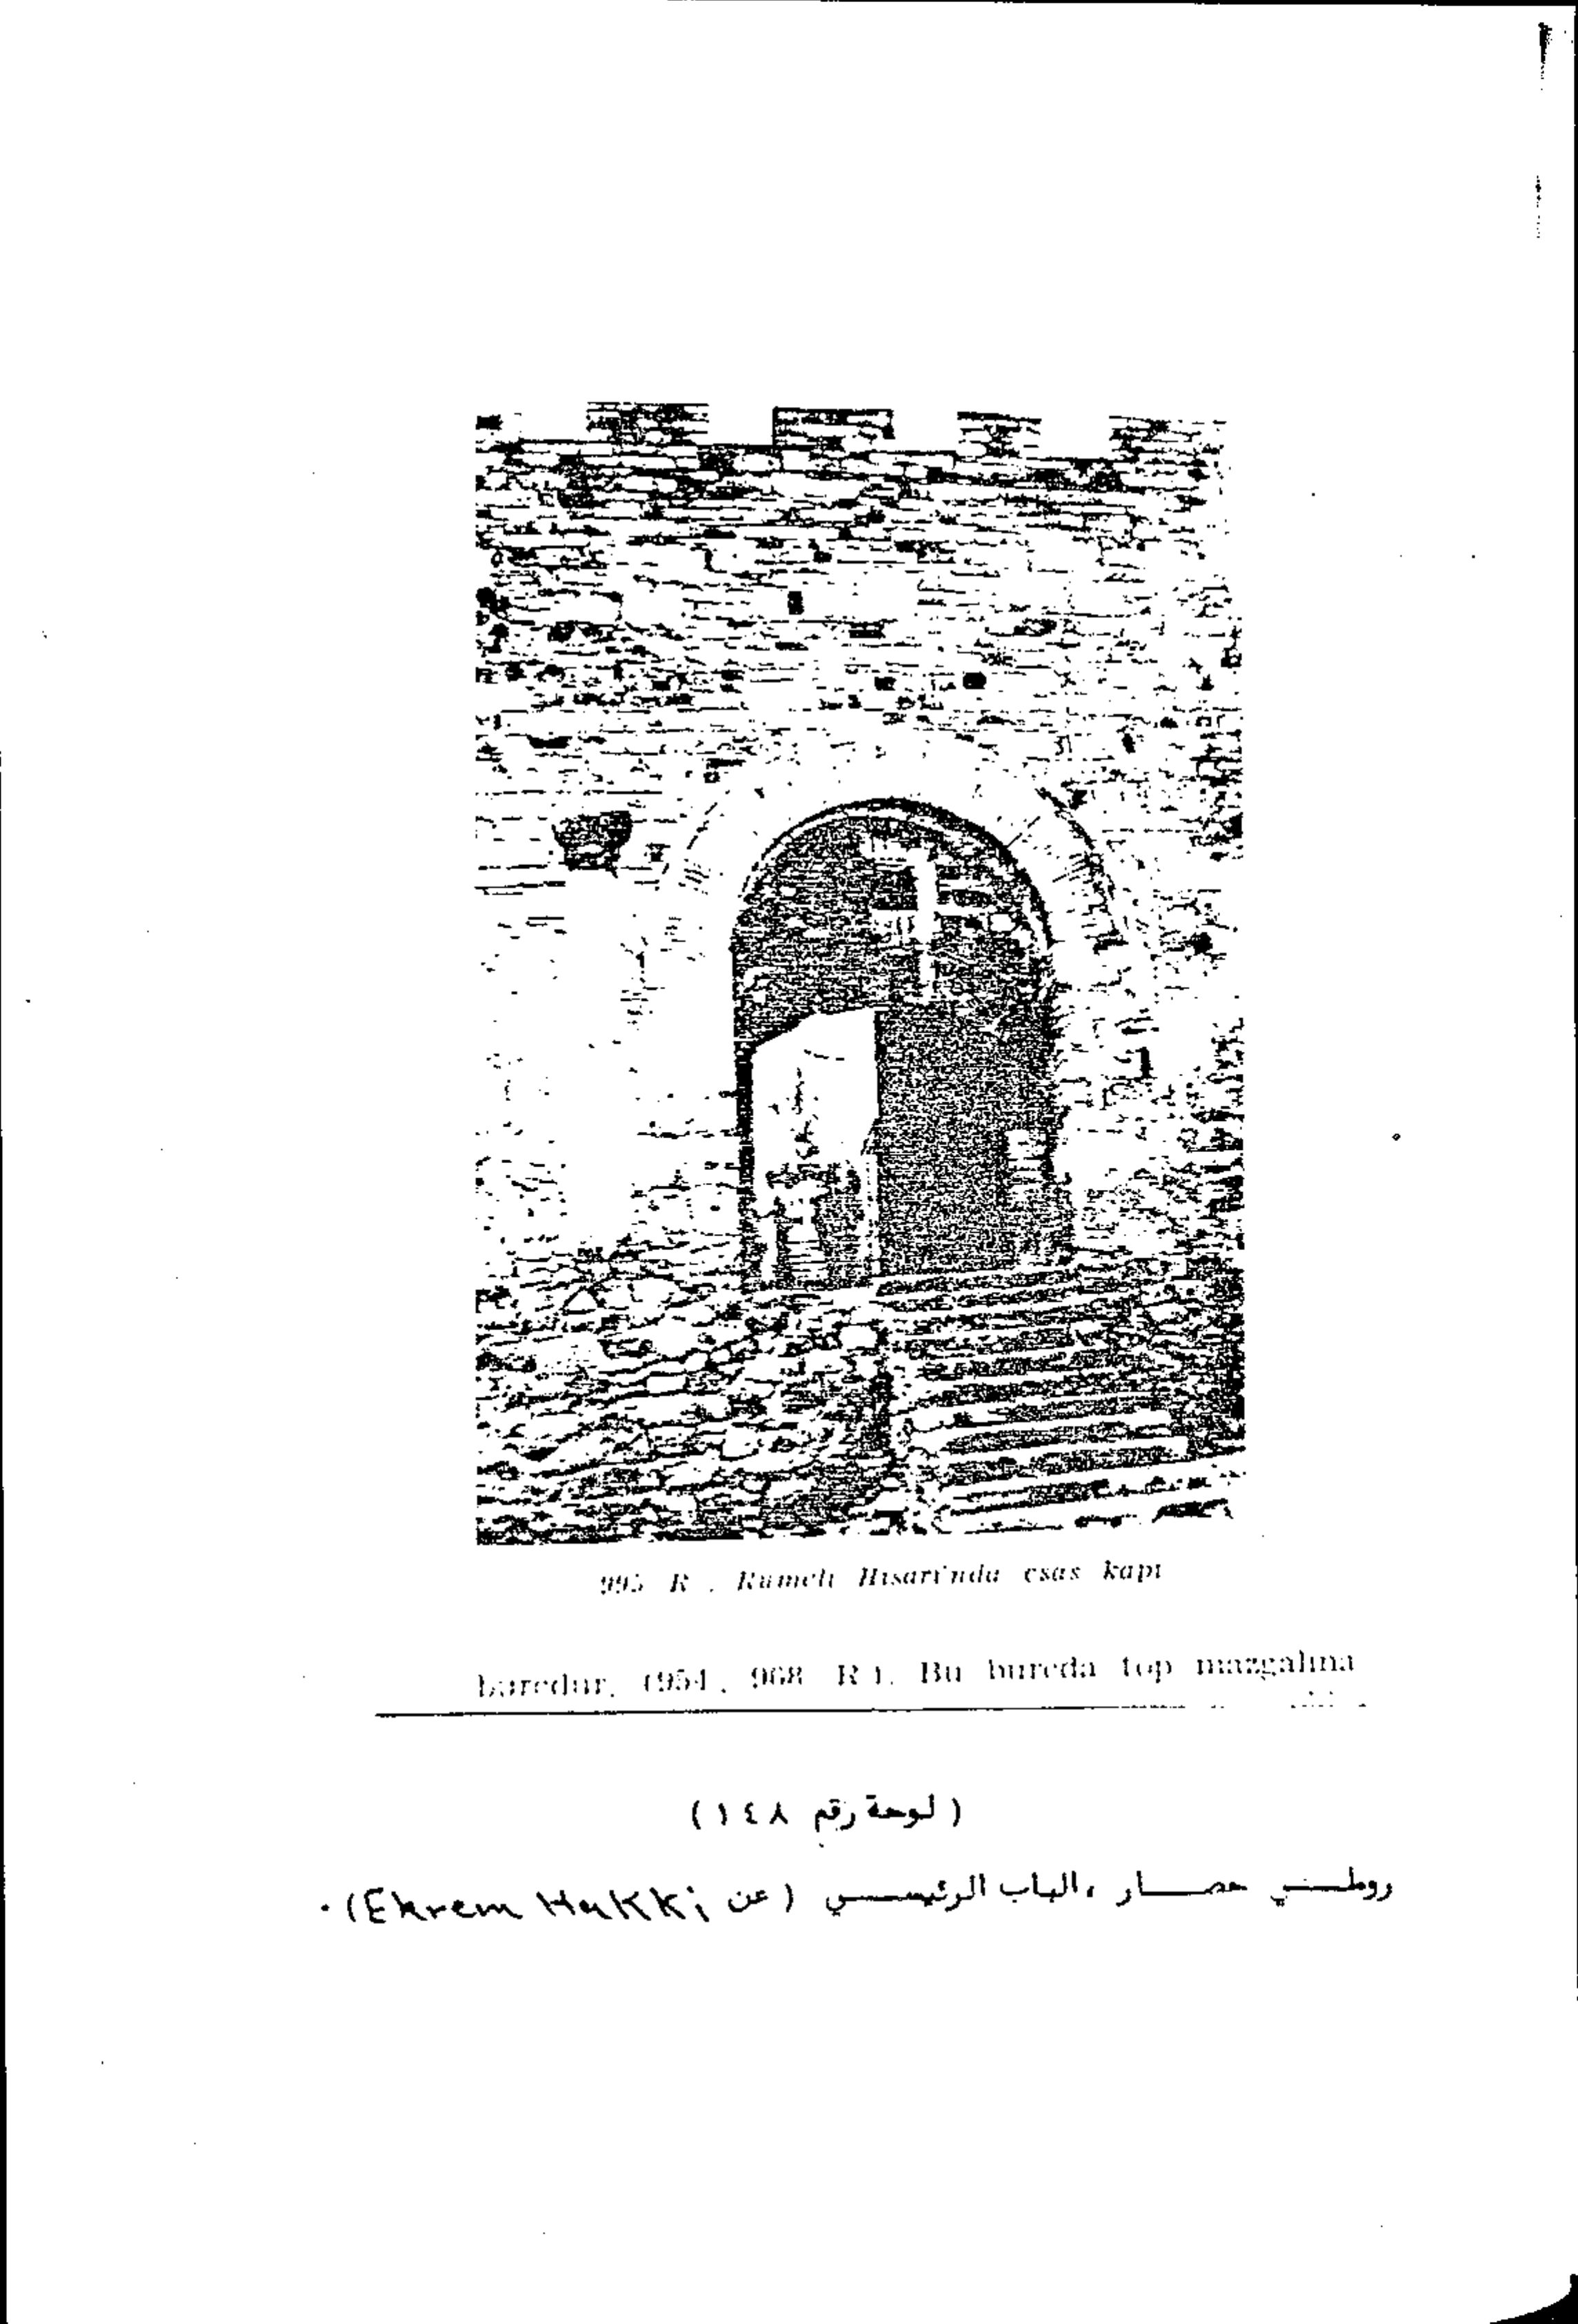 995 R . Rumeli Hisarı'nda esas kapı
burcdur. (954, 968 R ). Bu burcda top mazgalına
( لوحة رقم ١٤٨ )
روملي حصار ، الباب الرئيسي ( عن Ekrem Hakki) .